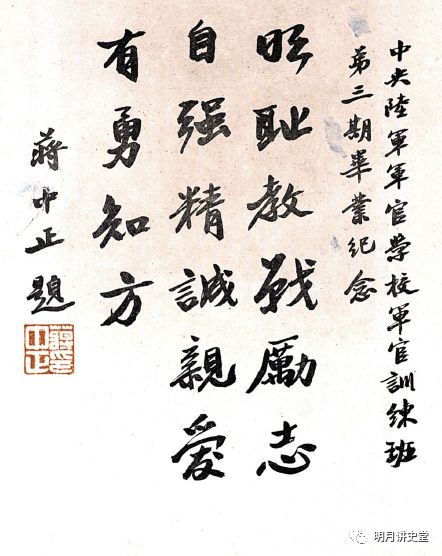 中央陸軍軍官學校軍官訓練班
第三期畢業紀念
明耻教戰勵志
自强精誠親愛
有勇知方
蔣中正題
明月讲史堂